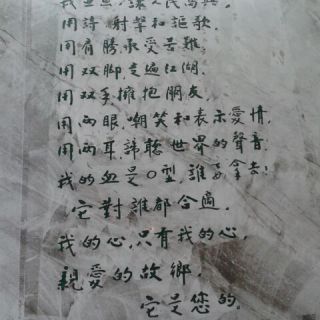 用詩 射擊和謳歌.
用肩膀承受苦難,
用双脚走遍江湖.
用双手擁抱朋友
用兩眼嘲笑和表示愛情,
用兩耳諦聽世界的聲音.
我的血是O型,誰要拿去!
它對誰都合適.
我的心,只有我的心,
親愛的故鄉,
它是您的.